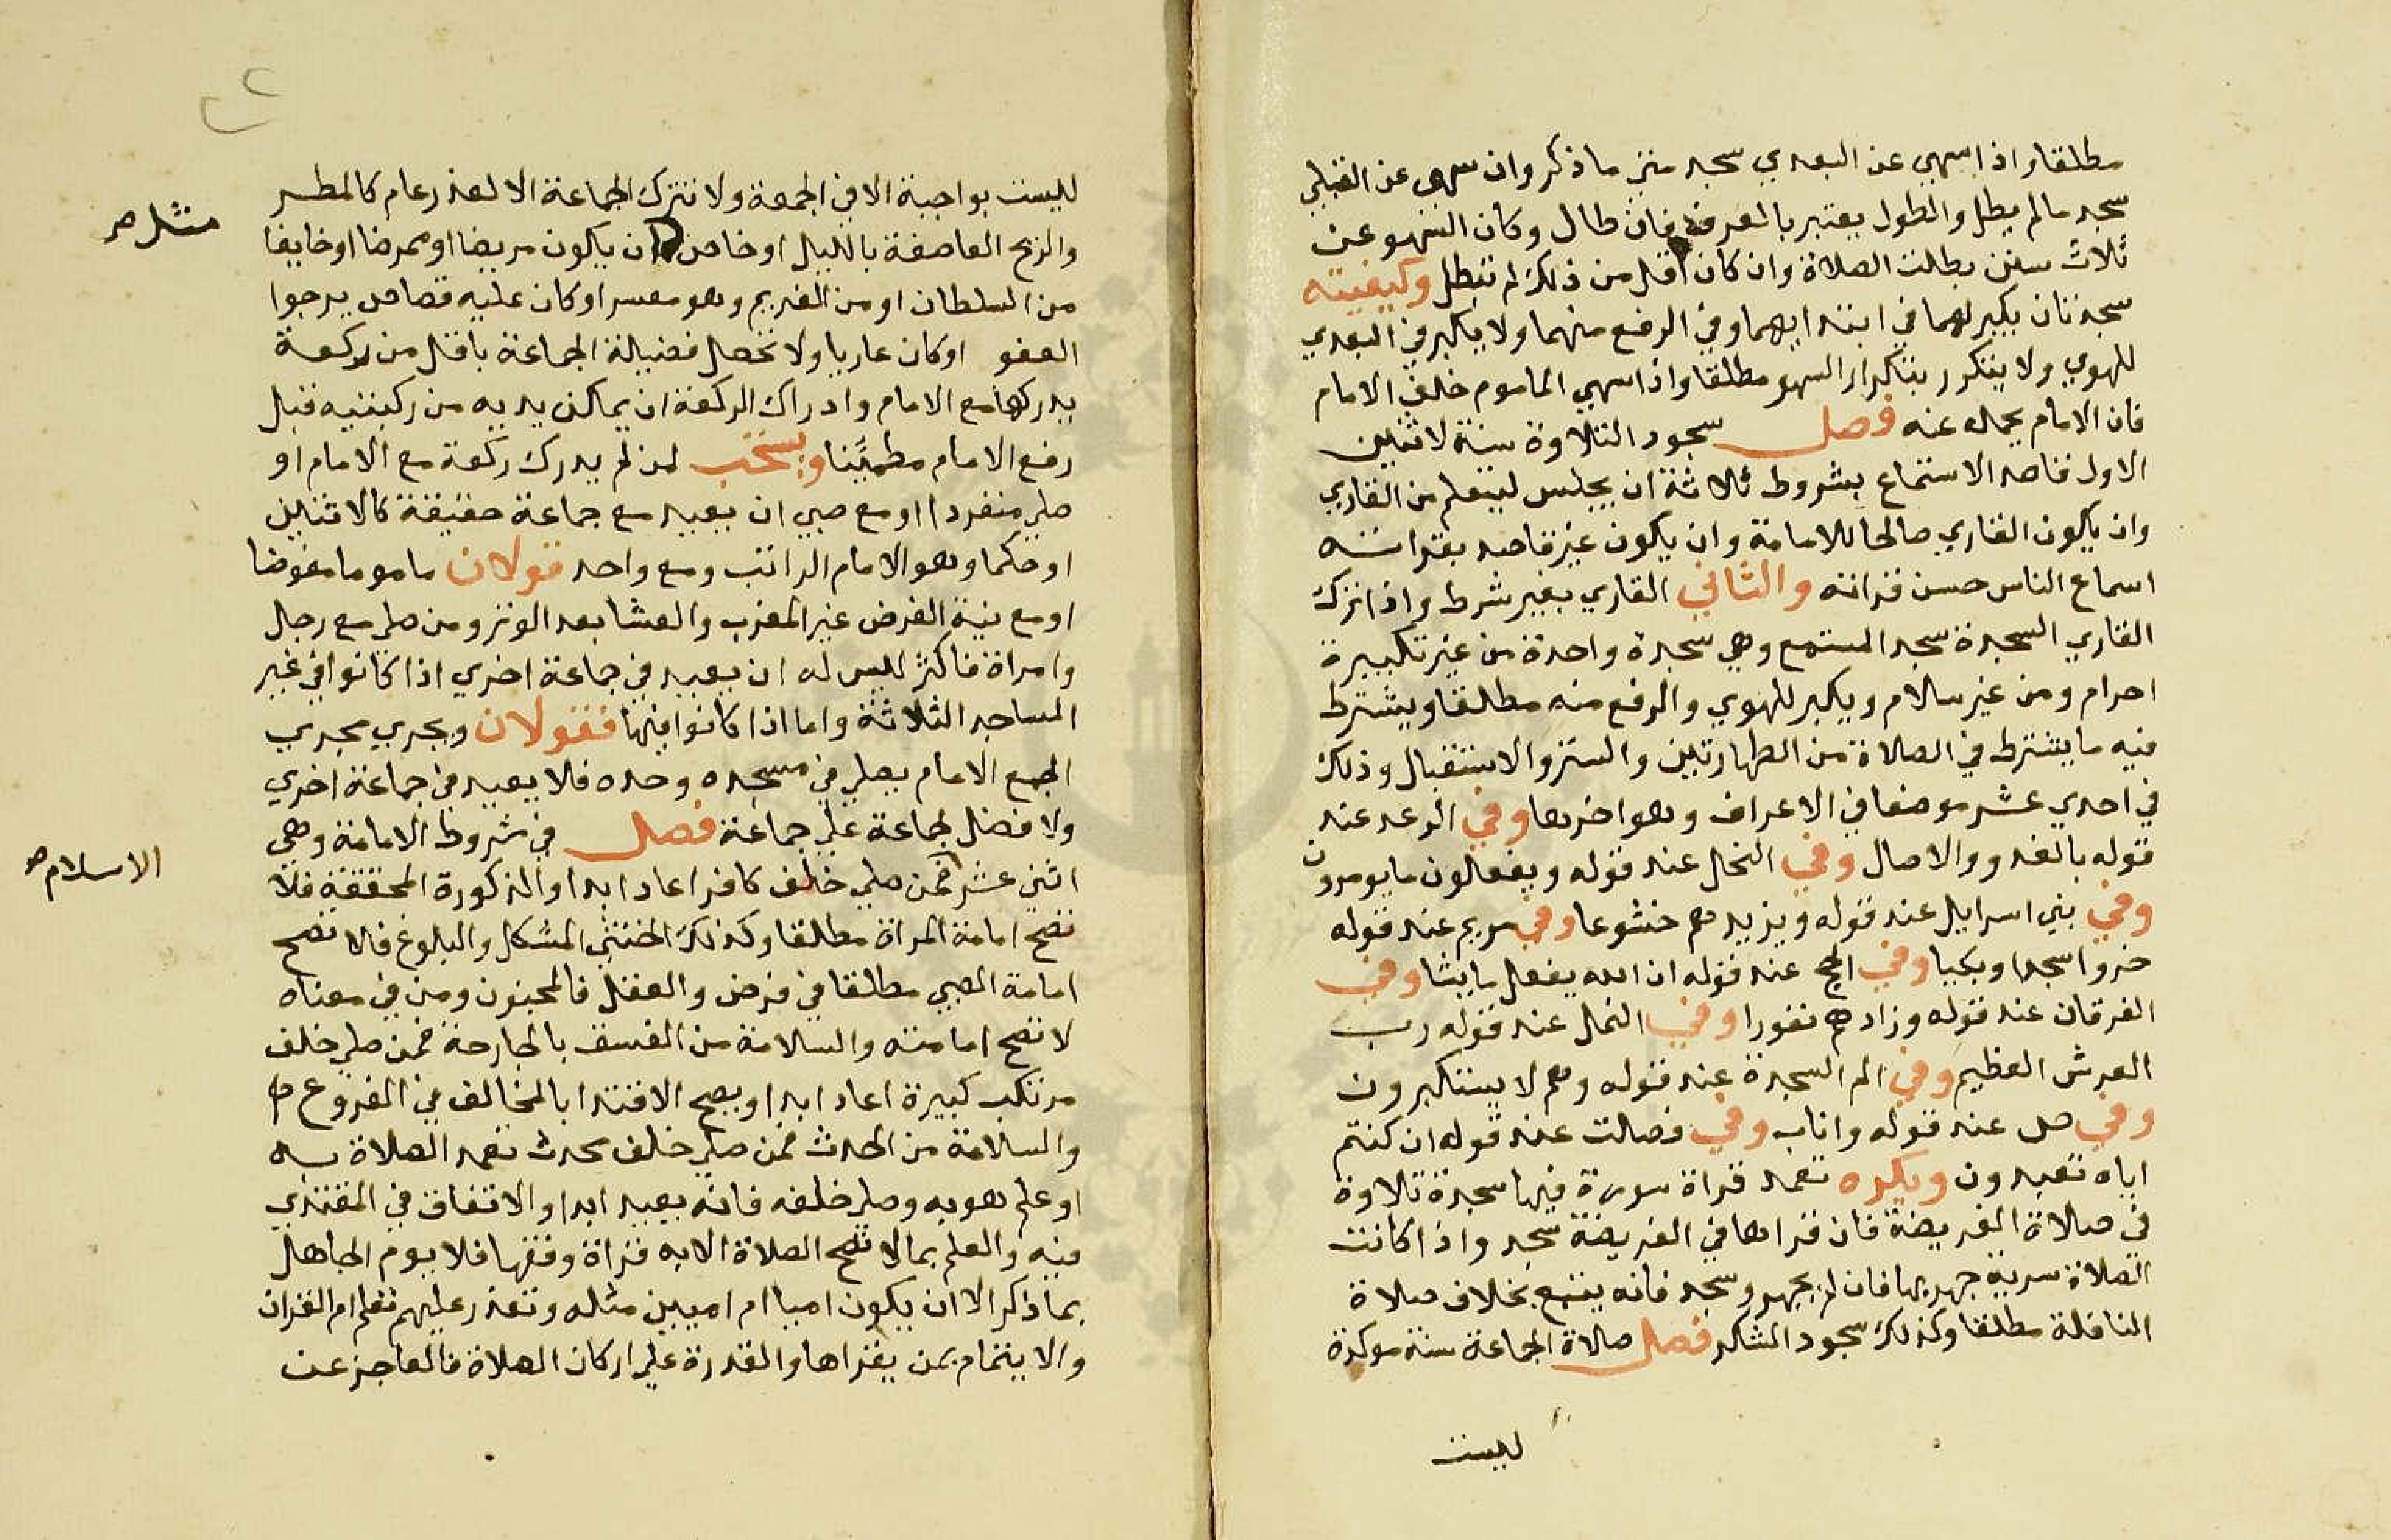 مطلقا واذا سهي عن البعدي سجد متي ما ذكر وان سهي عن القبلي
سجد مالم يطل والطول يعتبر بالعرف فان طال وكان السهو عن
ثلاث سنن بطلت الصلاة وان كان اقل من ذلك لم تبطل وكيفيته
سجدتان يكبر لهما في ابتدايهما وفي الرفع منهما ولا يكبر في البعدي
للهوي ولا يتكرر بتكرار السهو مطلقا واذا سهي الماموم خلف الامام
فان الامام يحمله عنه فصل سجود التلاوة سنة لاثنين
الاول قاصد الاستماع بشروط ثلاثة ان يجلس ليتعلم من القاري
وان يكون القاري صالحا للامامة وان يكون غير قاصد بقراته
اسماع الناس حسن قراته والثاني القاري بغير شرط واذا ترك
القاري السجدة سجد المستمع وهي سجدة واحدة من غير تكبيرة
احرام ومن غير سلام ويكبر للهوي والرفع منه مطلقا ويشترط
فيه ما يشترط في الصلاة من الطهارتين والستر والاستقبال وذلك
في احدي عشر موضعا في الاعراف وهو اخرها وفي الرعد عند
قوله بالغدو والاصال وفي النحل عند قوله ويفعلون ما يومرون
وفي بني اسرايل عند قوله ويزيدهم خشوعا وفي مريم عند قوله
خروا سجدا وبكيا وفي الحج عند قوله ان الله يفعل ما يشا وفي
الفرقان عند قوله وزادهم نفورا وفي النمل عند قوله رب
العرش العظيم وفي الم السجدة عند قوله وهم لا يستكبرون
وفي ص عند قوله واناب وفي فصلت عند قوله ان كنتم
اياه تعبدون ويكره تعمد قراة سورة فيها سجدة تلاوة
في صلاة الفريضة فان قراها في الفريضة سجد واذا كانت
الصلاة سرية جهر بها فان لم يجهر وسجد فانه يتبع بخلاف صلاة
النافلة مطلقا وكذلك سجود الشكر فصل صلاة الجماعة سنة موكدة
ليست
ليست بواجبة الا في الجمعة ولا تترك الجماعة الا لعذر عام كالمطر
والريح العاصفة بالليل او خاص ان يكون مريضا او ممرضا او خايفا
مثل صح
من السلطان او من الغريم وهو معسر او كان عليه قصاص يرجوا
العفو او كان عاريا ولا تحصل فضيلة الجماعة باقل من ركعة
يدركها مع الامام وادراك الركعة ان يمكن يديه من ركبتيه قبل
رفع الامام مطمينا ويستحب لمن لم يدرك ركعة مع الامام او
صلي منفردا او مع صبي ان يعيد مع جماعة حقيقة كالاثنين
او حكما وهو الامام الراتب ومع واحد قولان ماموما مفوضا
او مع نية الفرض غير المغرب والعشا بعد الوتر ومن صلي مع رجل
وامراة فاكثر ليس له ان يعيد في جماعة اخري اذا كانوا في غير
المساجد الثلاثة واما اذا كانوا فيها فقولان ويجري مجري
الجمع الامام يصلي في مسجده وحده فلا يعيد في جماعة اخري
ولا فضل لجماعة علي جماعة فصل في شروط الامامة وهي
اثني عشر فمن صلي خلف كافر اعاد ابدا والذكورة المحققة فلا
الاسلام صح
تصح امامة المراة مطلقا وكذلك الخنثي المشكل والبلوغ فلا تصح
امامة الصبي مطلقا في فرض والعقل فالمجنون ومن في معناه
لا تصح امامته والسلامة من الفسق بالجارحة فمن صلي خلف
مرتكب كبيرة اعاد ابدا ويصح الاقتدا بالمخالف في الفروع
والسلامة من الحدث فمن صلي خلف محدث تعمد الصلاة به
او علم هو به وصلي خلفه فانه يعيد ابدا والاتفاق في المقتدي
فيه والعلم بما لا تصح الصلاة الا به قراة وفقها فلا يوم الجاهل
بما ذكر الا ان يكون اميا ام اميين مثله وتعذر عليهم تعلم ام القران
والايتمام بمن يقراها والقدرة علي اركان الصلاة فالعاجز عن